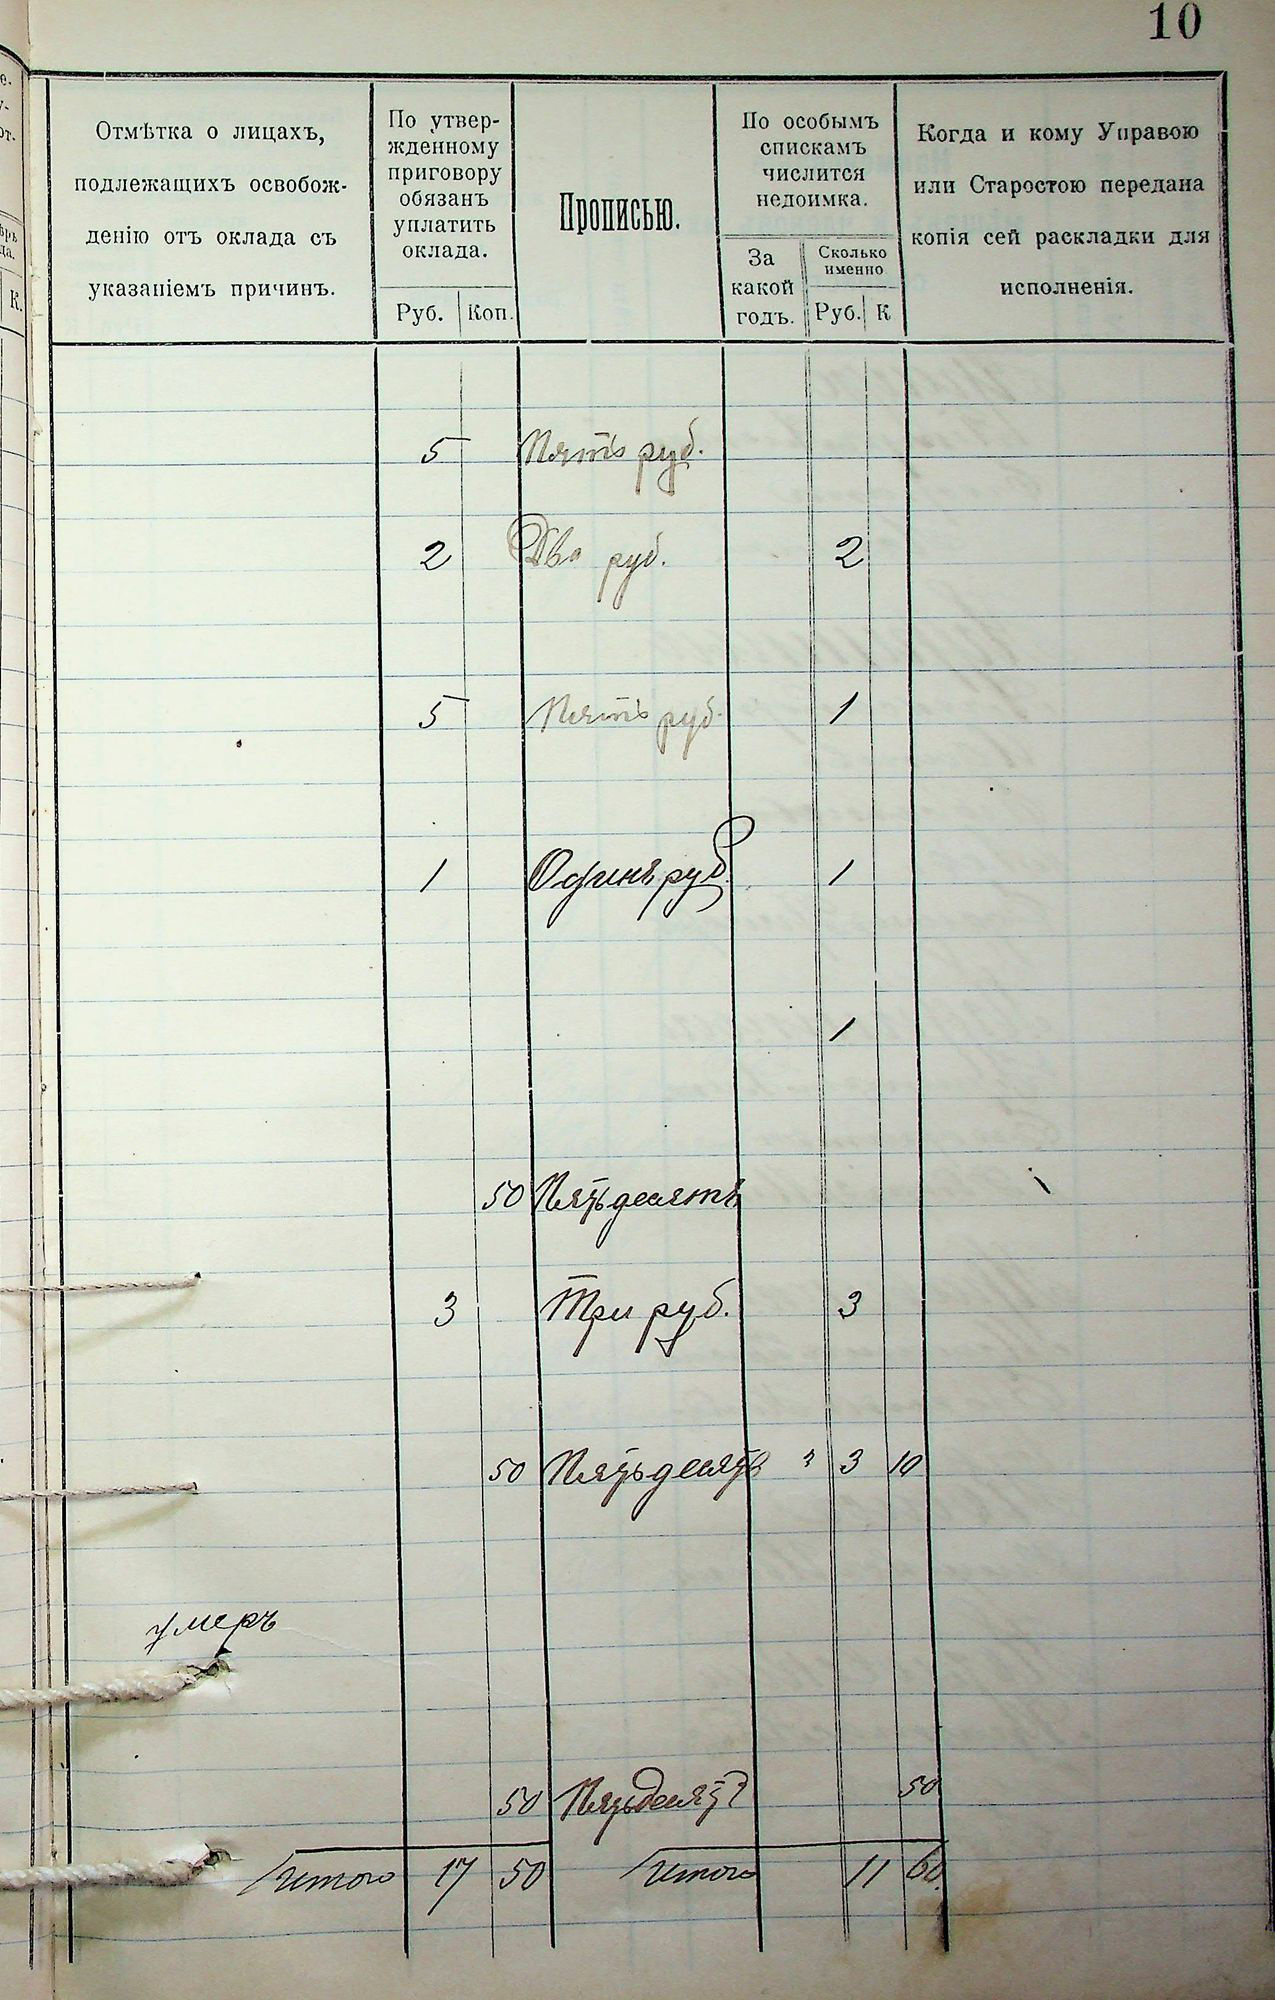 10
Отмѣтка о лицахъ,
подлежащихъ освобож-
денію отъ оклада съ
указаніемъ причинъ.
По утвер-
жденному
приговору
обязанъ
уплатить
оклада.
Руб. Коп.
Прописью.
По особымъ
спискамъ
числится
недоимка.
За
какой
годъ.
Сколько
именно
Руб. К
Когда и кому Управою
или Старостою передана
копія сей раскладки для
исполненія.
е.
у-
от.
ѣръ
да.
К.
5 Пять руб.
2 Два руб. 2
5 Пять руб. 1
1 Одинъ руб. 1
1
50 Пятьдесятъ
3 Три руб. 3
50 Пятьдесятъ 3 10
умеръ
50 Пятьдесятъ 50
Итого 17 50 Итого 11 60